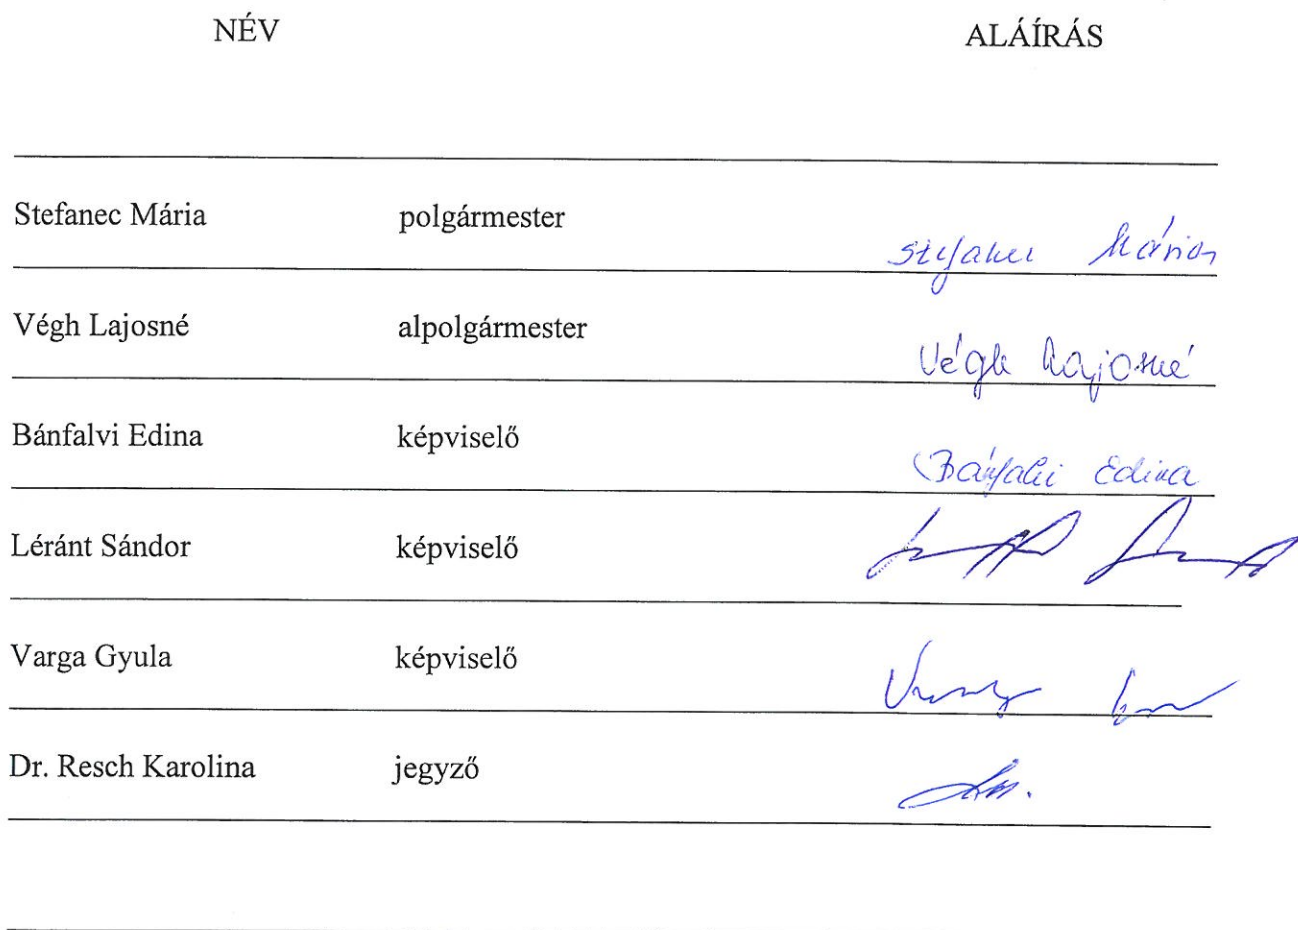 NÉV ALÁÍRÁS
Stefanec Mária polgármester Stefanec Mária
Végh Lajosné alpolgármester Végh Lajosné
Bánfalvi Edina képviselő Bánfalvi Edina
Léránt Sándor képviselő
Varga Gyula képviselő
Dr. Resch Karolina jegyző